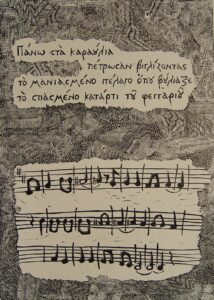 Πάνω στὰ καραούλια
πέτρωσαν βιγλίζοντας
τὸ μανιασμένο πέλαγο ὅπου βούλιαξε
τὸ σπασμένο κατάρτι τοῦ φεγγαριοῦ